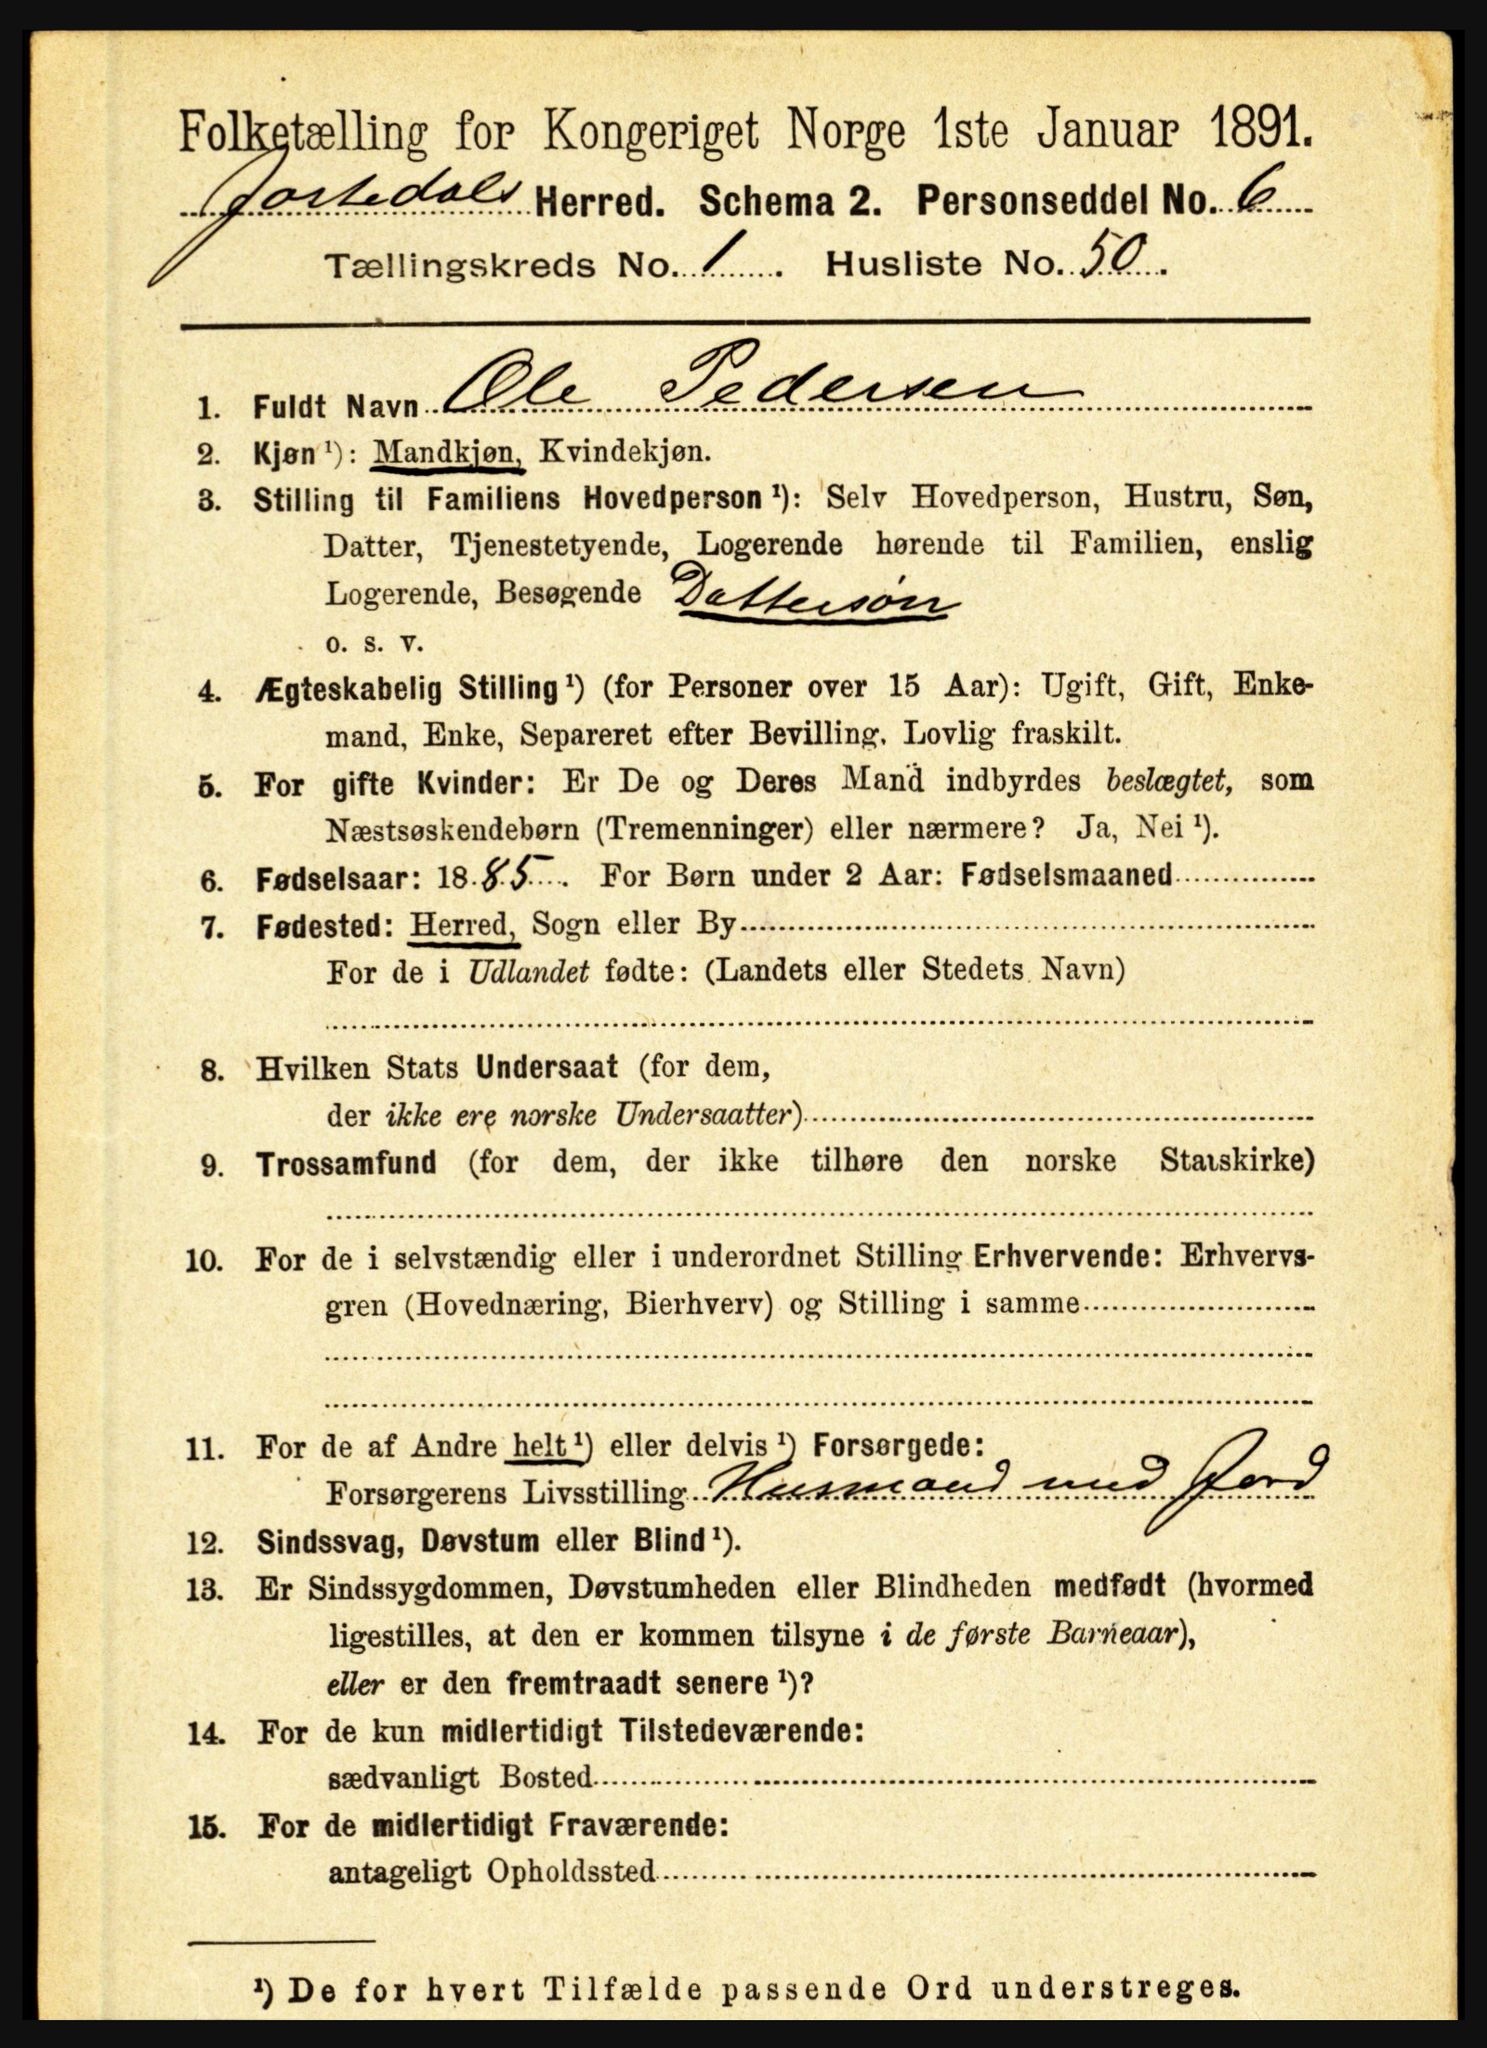 Folketælling for Kongeriget Norge 1ste Januar 1891.
Jostedals Herred. Schema 2. Personseddel No. 6
Tællingskreds No. 1. Husliste No. 50.
1. Fuldt Navn Ole Pedersen
2. Kjøn ¹): Mandkjøn, Kvindekjøn.
3. Stilling til Familiens Hovedperson ¹): Selv Hovedperson, Hustru, Søn,
Datter, Tjenestetyende, Logerende hørende til Familien, enslig
Logerende, Besøgende Dattersøn
o. s. v.
4. Ægteskabelig Stilling ¹) (for Personer over 15 Aar): Ugift, Gift, Enke-
mand, Enke, Separeret efter Bevilling. Lovlig fraskilt.
5. For gifte Kvinder: Er De og Deres Mand indbyrdes beslægtet, som
Næstsøskendebørn (Tremenninger) eller nærmere? Ja, Nei ¹).
6. Fødselsaar: 1885. For Børn under 2 Aar: Fødselsmaaned
7. Fødested: Herred, Sogn eller By
For de i Udlandet fødte: (Landets eller Stedets Navn)
8. Hvilken Stats Undersaat (for dem,
der ikke ere norske Undersaatter)
9. Trossamfund (for dem, der ikke tilhøre den norske Statskirke)
10. For de i selvstændig eller i underordnet Stilling Erhvervende: Erhvervs-
gren (Hovednæring, Bierhverv) og Stilling i samme
11. For de af Andre helt ¹) eller delvis ¹) Forsørgede:
Forsørgerens Livsstilling Husmand med Jord
12. Sindssvag, Døvstum eller Blind ¹).
13. Er Sindssygdommen, Døvstumheden eller Blindheden medfødt (hvormed
ligestilles, at den er kommen tilsyne i de første Barneaar),
eller er den fremtraadt senere ¹)?
14. For de kun midlertidigt Tilstedeværende:
sædvanligt Bosted
15. For de midlertidigt Fraværende:
antageligt Opholdssted
¹) De for hvert Tilfælde passende Ord understreges.